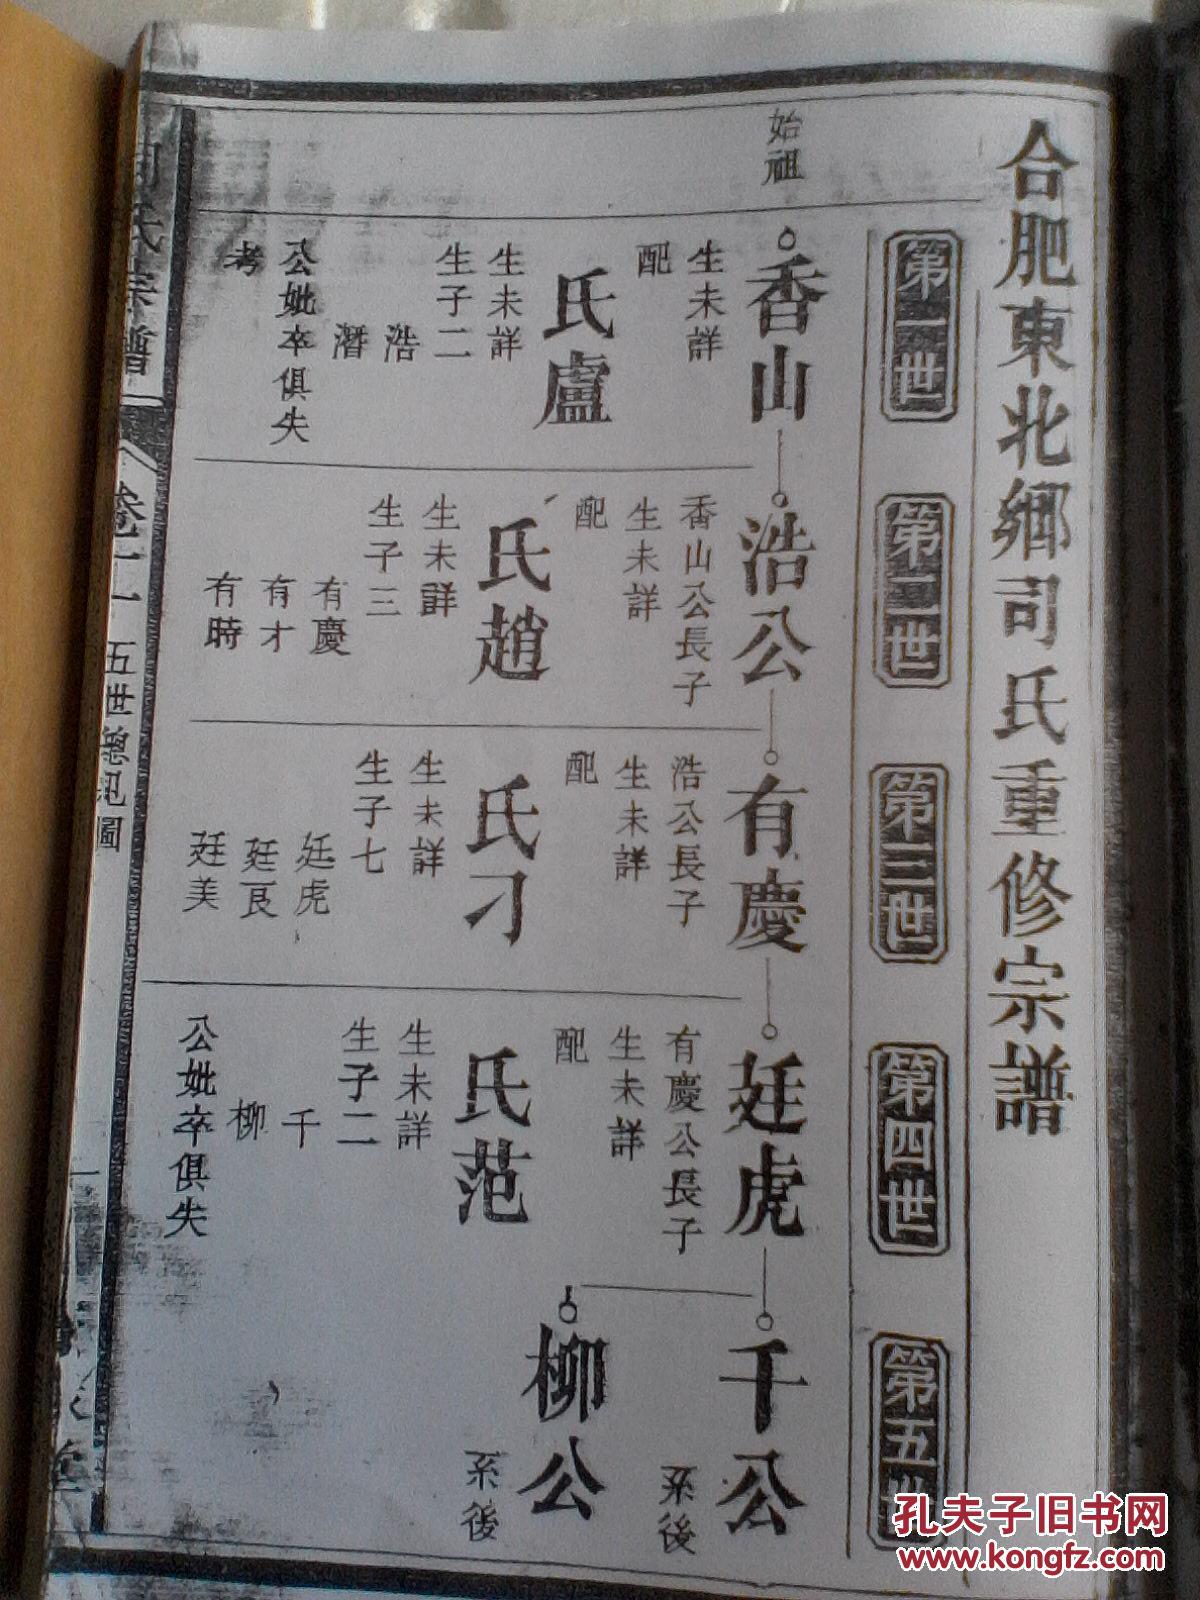 合肥東北鄉司氏重修宗譜
第一世
第二世
第三世
第四世
第五世
始祖
香山
生未詳
配
氏盧
生未詳
生子二
浩
潛
公妣卒俱失
考
浩公
香山公長子
生未詳
配
氏趙
生未詳
生子三
有慶
有才
有時
有慶
浩公長子
生未詳
配
氏刁
生未詳
生子七
廷虎
廷良
廷美
廷虎
有慶公長子
生未詳
配
氏范
生未詳
生子二
千
柳
公妣卒俱失
千公
系後
柳公
系後
司氏宗譜
卷十一
五世總圖
堂
孔夫子旧书网
www.kongfz.com